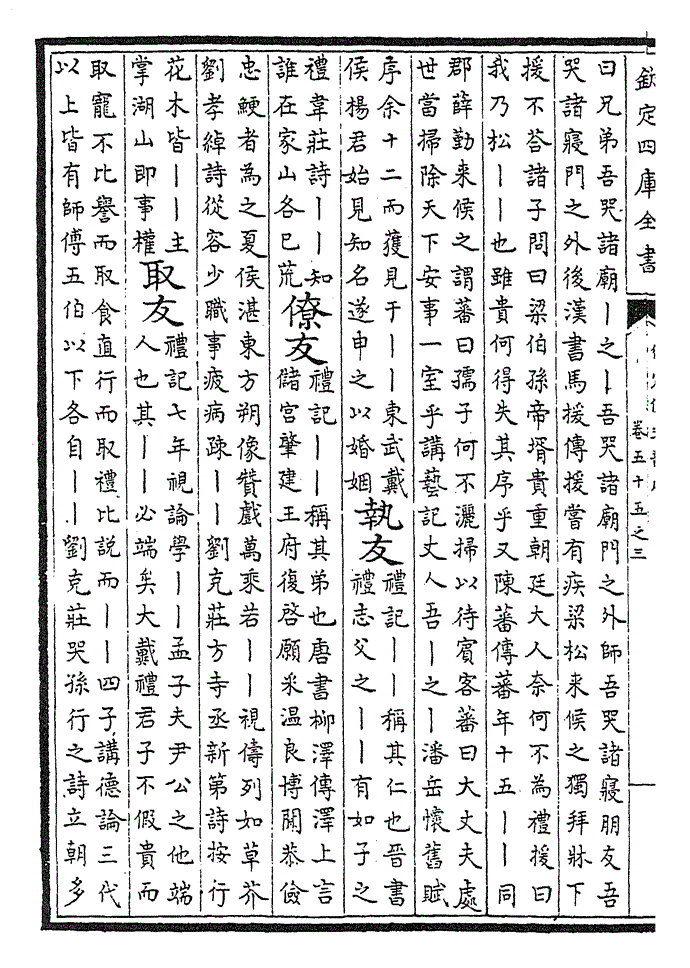 欽定四庫全書
卷五十五之三
曰兄弟吾哭諸廟丨之丨吾哭諸廟門之外師吾哭諸寢朋友吾
哭諸寢門之外後漢書馬援傳援嘗有疾梁松来候之獨拜牀下
援不荅諸子問曰梁伯孫帝壻貴重朝廷大人奈何不為禮援曰
我乃松丨丨也雖貴何得失其序乎又陳蕃傳蕃年十五丨丨同
郡薛勤来候之謂蕃曰孺子何不灑掃以待賓客蕃曰大丈夫處
世當掃除天下安事一室乎講藝記丈人吾丨之丨潘岳懷舊賦
序余十二而獲見于丨丨東武戴
侯楊君始見知名遂申之以婚姻
執友
禮記丨丨稱其仁也晉書
禮志父之丨丨有如子之
禮韋莊詩丨丨知
誰在家山各已荒
僚友
禮記丨丨稱其弟也唐書柳澤傳澤上言
儲宮肇建王府復啓願采温良博聞恭儉
忠鯁者為之夏侯湛東方朔像贊戲萬乘若丨丨視儔列如草芥
劉孝綽詩從容少職事疲病疎丨丨劉克莊方寺丞新第詩按行
花木皆丨丨主
掌湖山即事權
取友
禮記七年視論學丨丨孟子夫尹公之他端
人也其丨丨必端矣大戴禮君子不假貴而
取寵不比譽而取食直行而取禮比說而丨丨四子講德論三代
以上皆有師傅五伯以下各自丨丨劉克莊哭孫行之詩立朝多